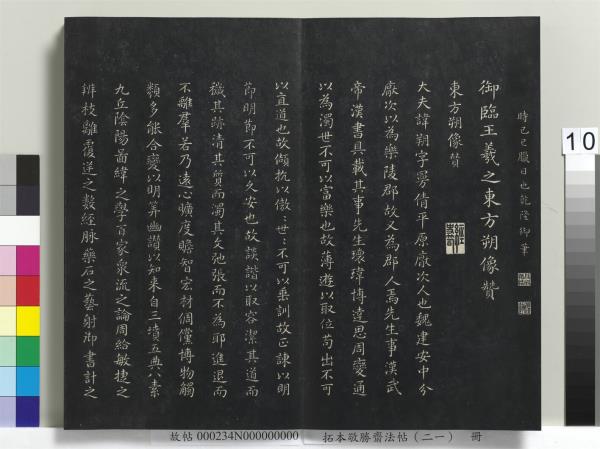 時己巳臘日也乾隆御筆
御臨王羲之東方朔像贊
東方朔像贊
大夫諱朔字曼倩平原厭次人也魏建安中分
厭次以為樂陵郡故又為郡人焉先生事漢武
帝漢書具載其事先生瓌瑋博達思周變通
以為濁世不可以富樂也故薄遊以取位苟出不可
以直道也故頡抗以傲世世不可以垂訓故正諫以明
節明節不可以久安也故談諧以取容潔其道而
穢其跡清其質而濁其文弛張而不為耶進退而
不離羣若乃遠心曠度贍智宏材倜儻博物觸
類多能合變以明筭幽讚以知来自三墳五典八素
九丘陰陽圖緯之學百家衆流之論周給敏捷之
辨枝離覆逆之數經脉藥石之藝射御書計之
10
故帖 000234N000000000 拓本敬勝齋法帖（二一） 冊